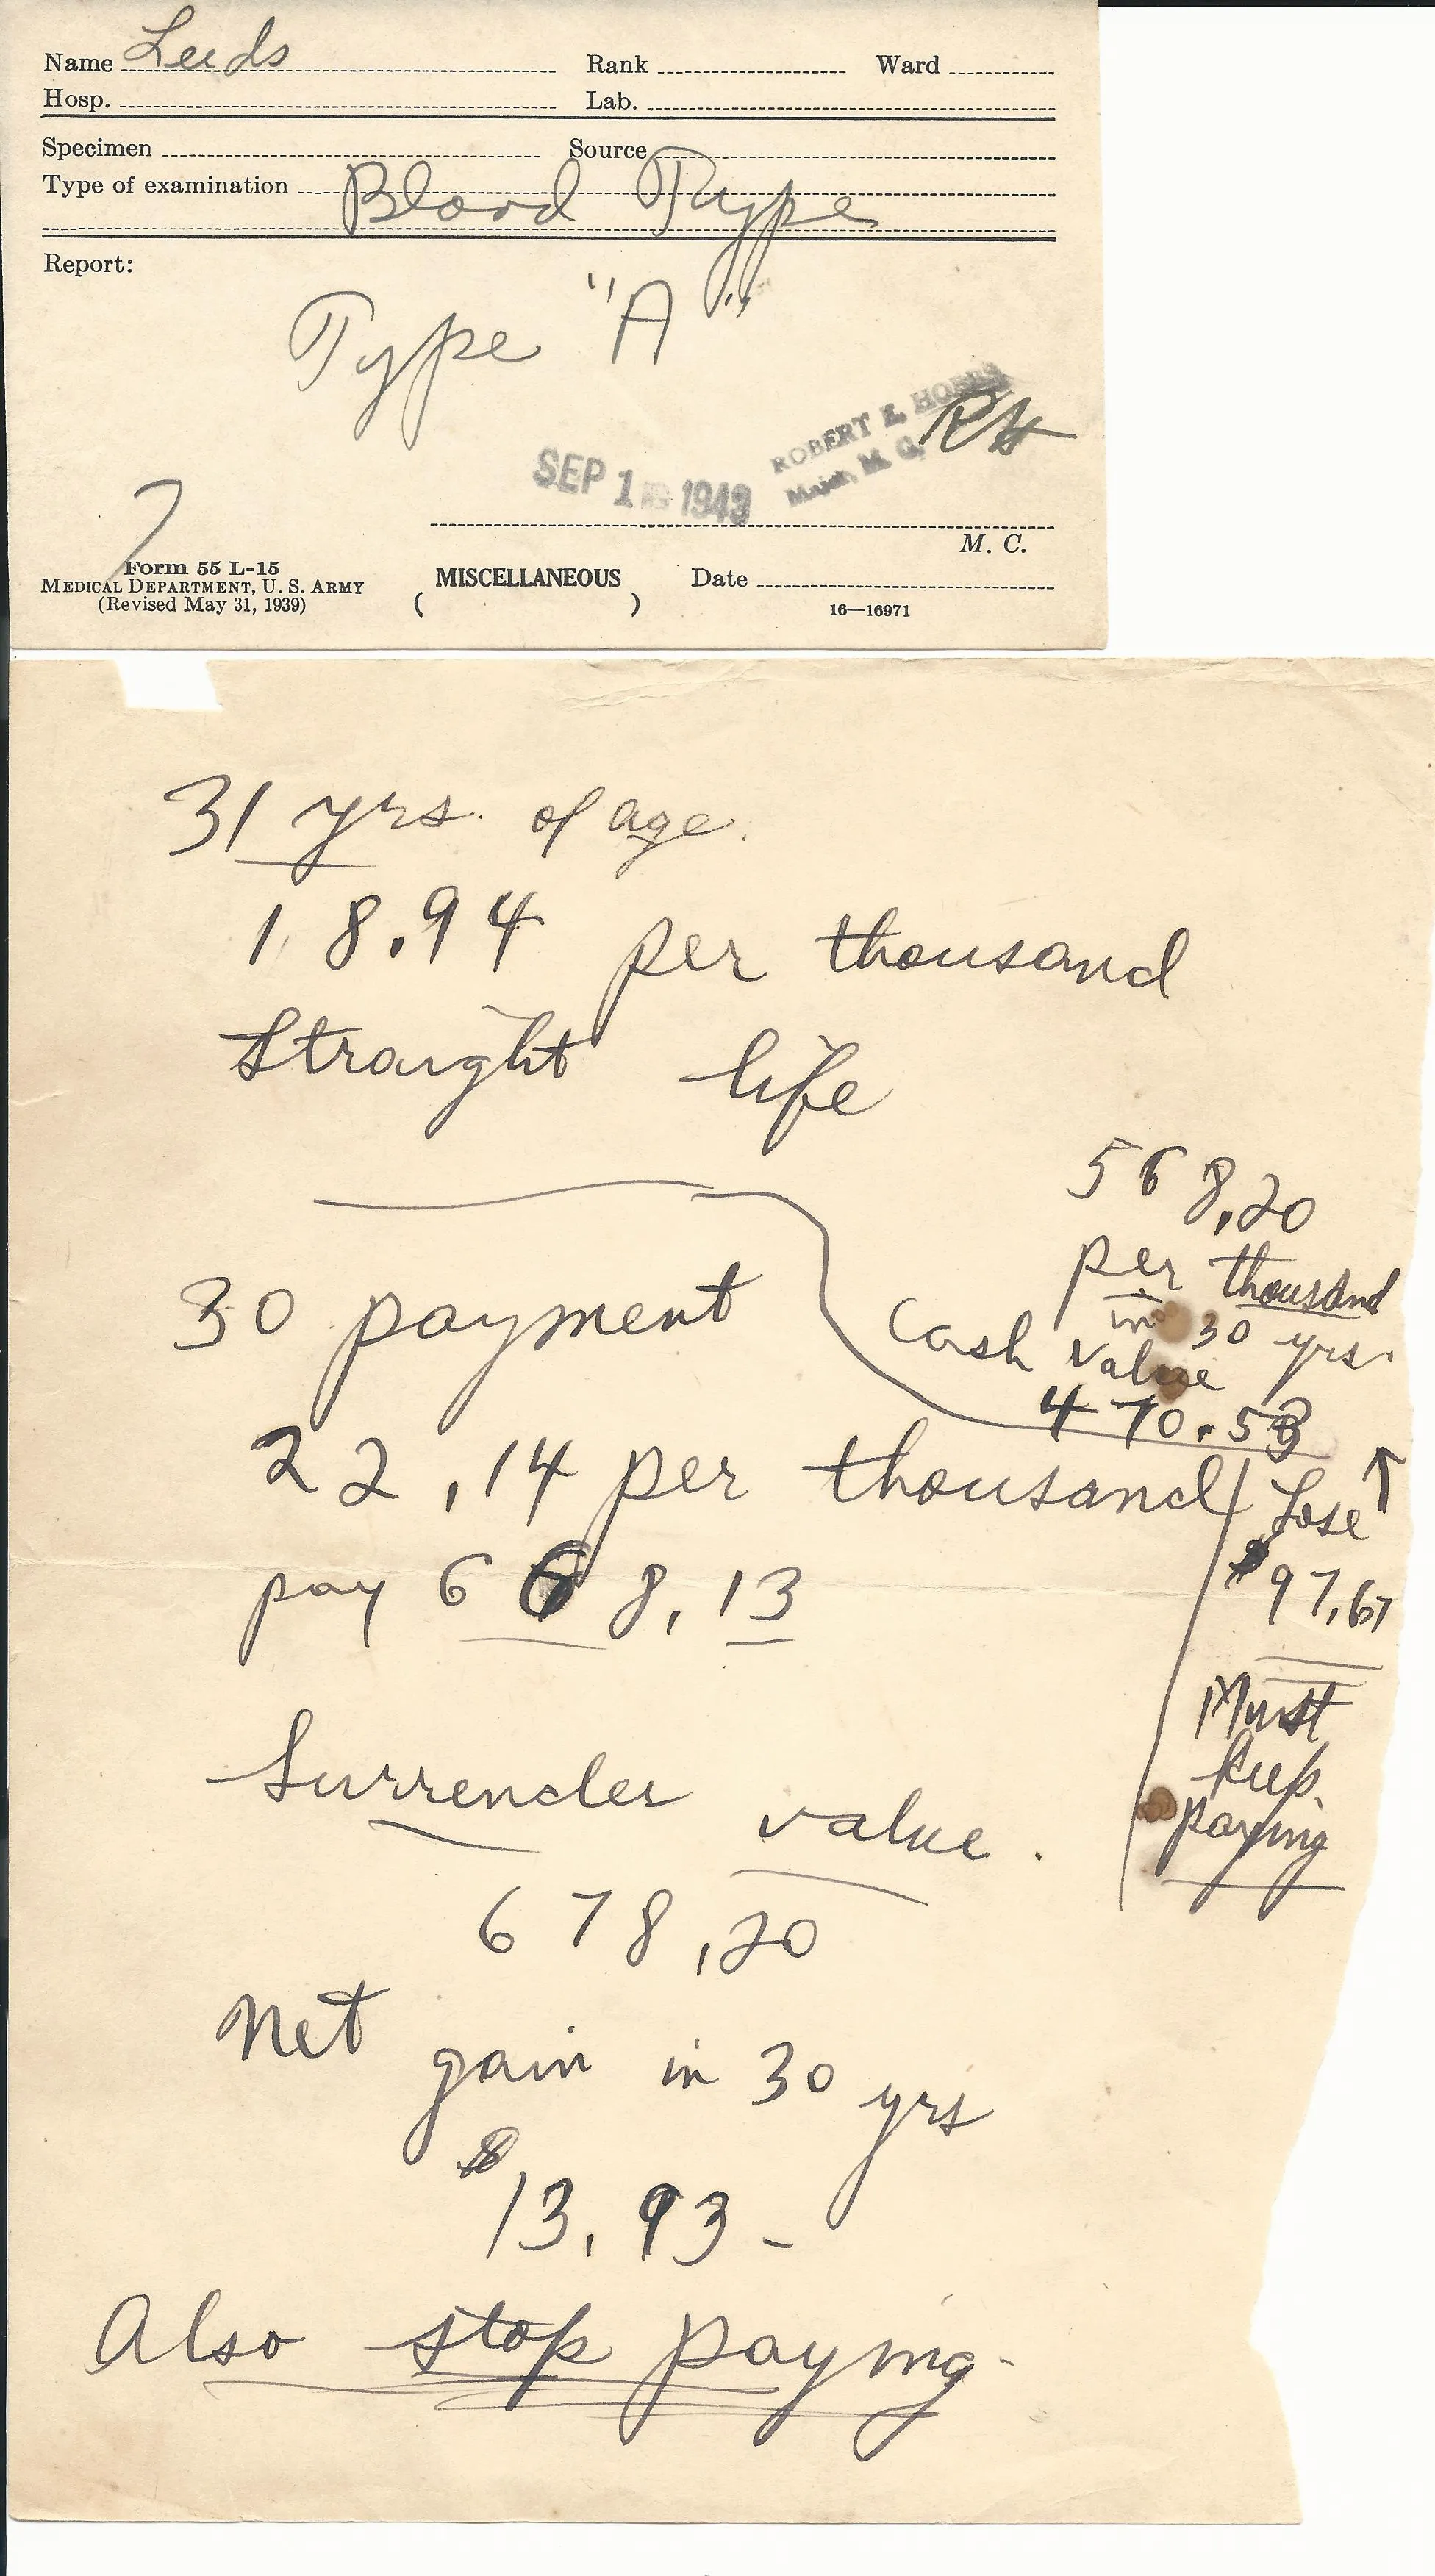 Name Leeds Rank Ward
Hosp. Lab.
Specimen Source
Type of examination Blood Type
Report:
Type "A"
ROBERT E.
Major, M. C.
RH
SEP 1 1943
M. C.
7
Form 55 L-15
MEDICAL DEPARTMENT, U. S. ARMY
(Revised May 31, 1939)
(MISCELLANEOUS)
Date
16—16971
31 yrs. of age.
18.94 per thousand
Straight life
568,20
per thousand
in 30 yrs.
Cash value
470.53
Lose
$97,67
Must
keep
paying
30 payment
22,14 per thousand
pay 668,13
Surrender value.
678,20
Net gain in 30 yrs
$13,93-
Also stop paying-